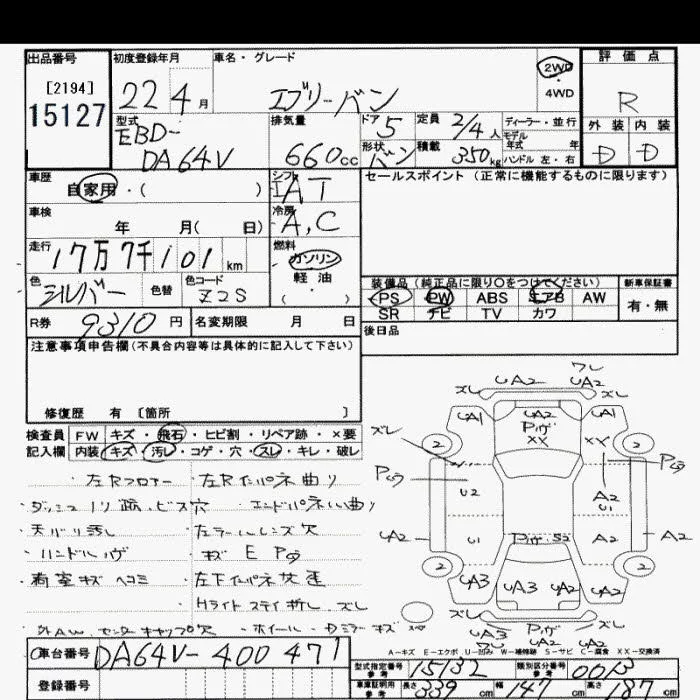 出品番号 初度登録年月 車名・グレード 評価点
[2194] 15127
22年 4月 エブリーバン 2WD 4WD R
型式 排気量 ドア 定員 ディーラー・並行 外装 内装
EBD-DA64V 660cc 5 2/4人 モデル年式 年
形状 バン 積載 350kg ハンドル 左・右 D D
車歴 自家用・( ) シフト IAT セールスポイント (正常に機能するものに限ります)
車検 年 月( 日) 冷房 A,C
走行 17万7千101km 燃料 ガソリン 軽油 ( )
色 シルバー 色替 色コード Z2S
装備品 (純正品に限り○をつけてください) 新車保証書
PS PW ABS エアB AW 有・無
SR ナビ TV カワ
R券 9310円 名変期限 月 日 後日品
注意事項申告欄(不具合内容等は具体的に記入して下さい)
修復歴 有 [箇所 ]
検査員 FW キズ・飛石・ヒビ割・リペア跡・×要
記入欄 内装 キズ・汚レ・コゲ・穴・スレ・キレ・破レ
・左Rフロアー ・左Rインパネ曲り
・ダッシュ ビス穴 ・エンドパネル曲り
・天バリ汚レ ・左テールレンズ欠
・ハンドル ・キズ E
・荷室キズ ヘコミ
・Hライト ステイ折レ ズレ
センターキャップ欠 ・ホイール・ドミラーキズ
ズレ UA2 UA2 ズレ
UA1 UA2 UA1
ズレ 2 XX XX 2
U2 A2 U1
UA2 U1 A2 A2
2 UA3 UA3 UA2 UA2 2
ズレ UA3 UA2 ズレ
A-キズ E-エクボ U-凹み W-補修跡 S-サビ C-腐食 XX-交換済
車台番号 DA64V-400471
型式指定番号 参考 15132 類別区分番号 参考 0013
登録番号 車庫証明用 参考 長さ 339cm 幅 147cm 高さ 187cm